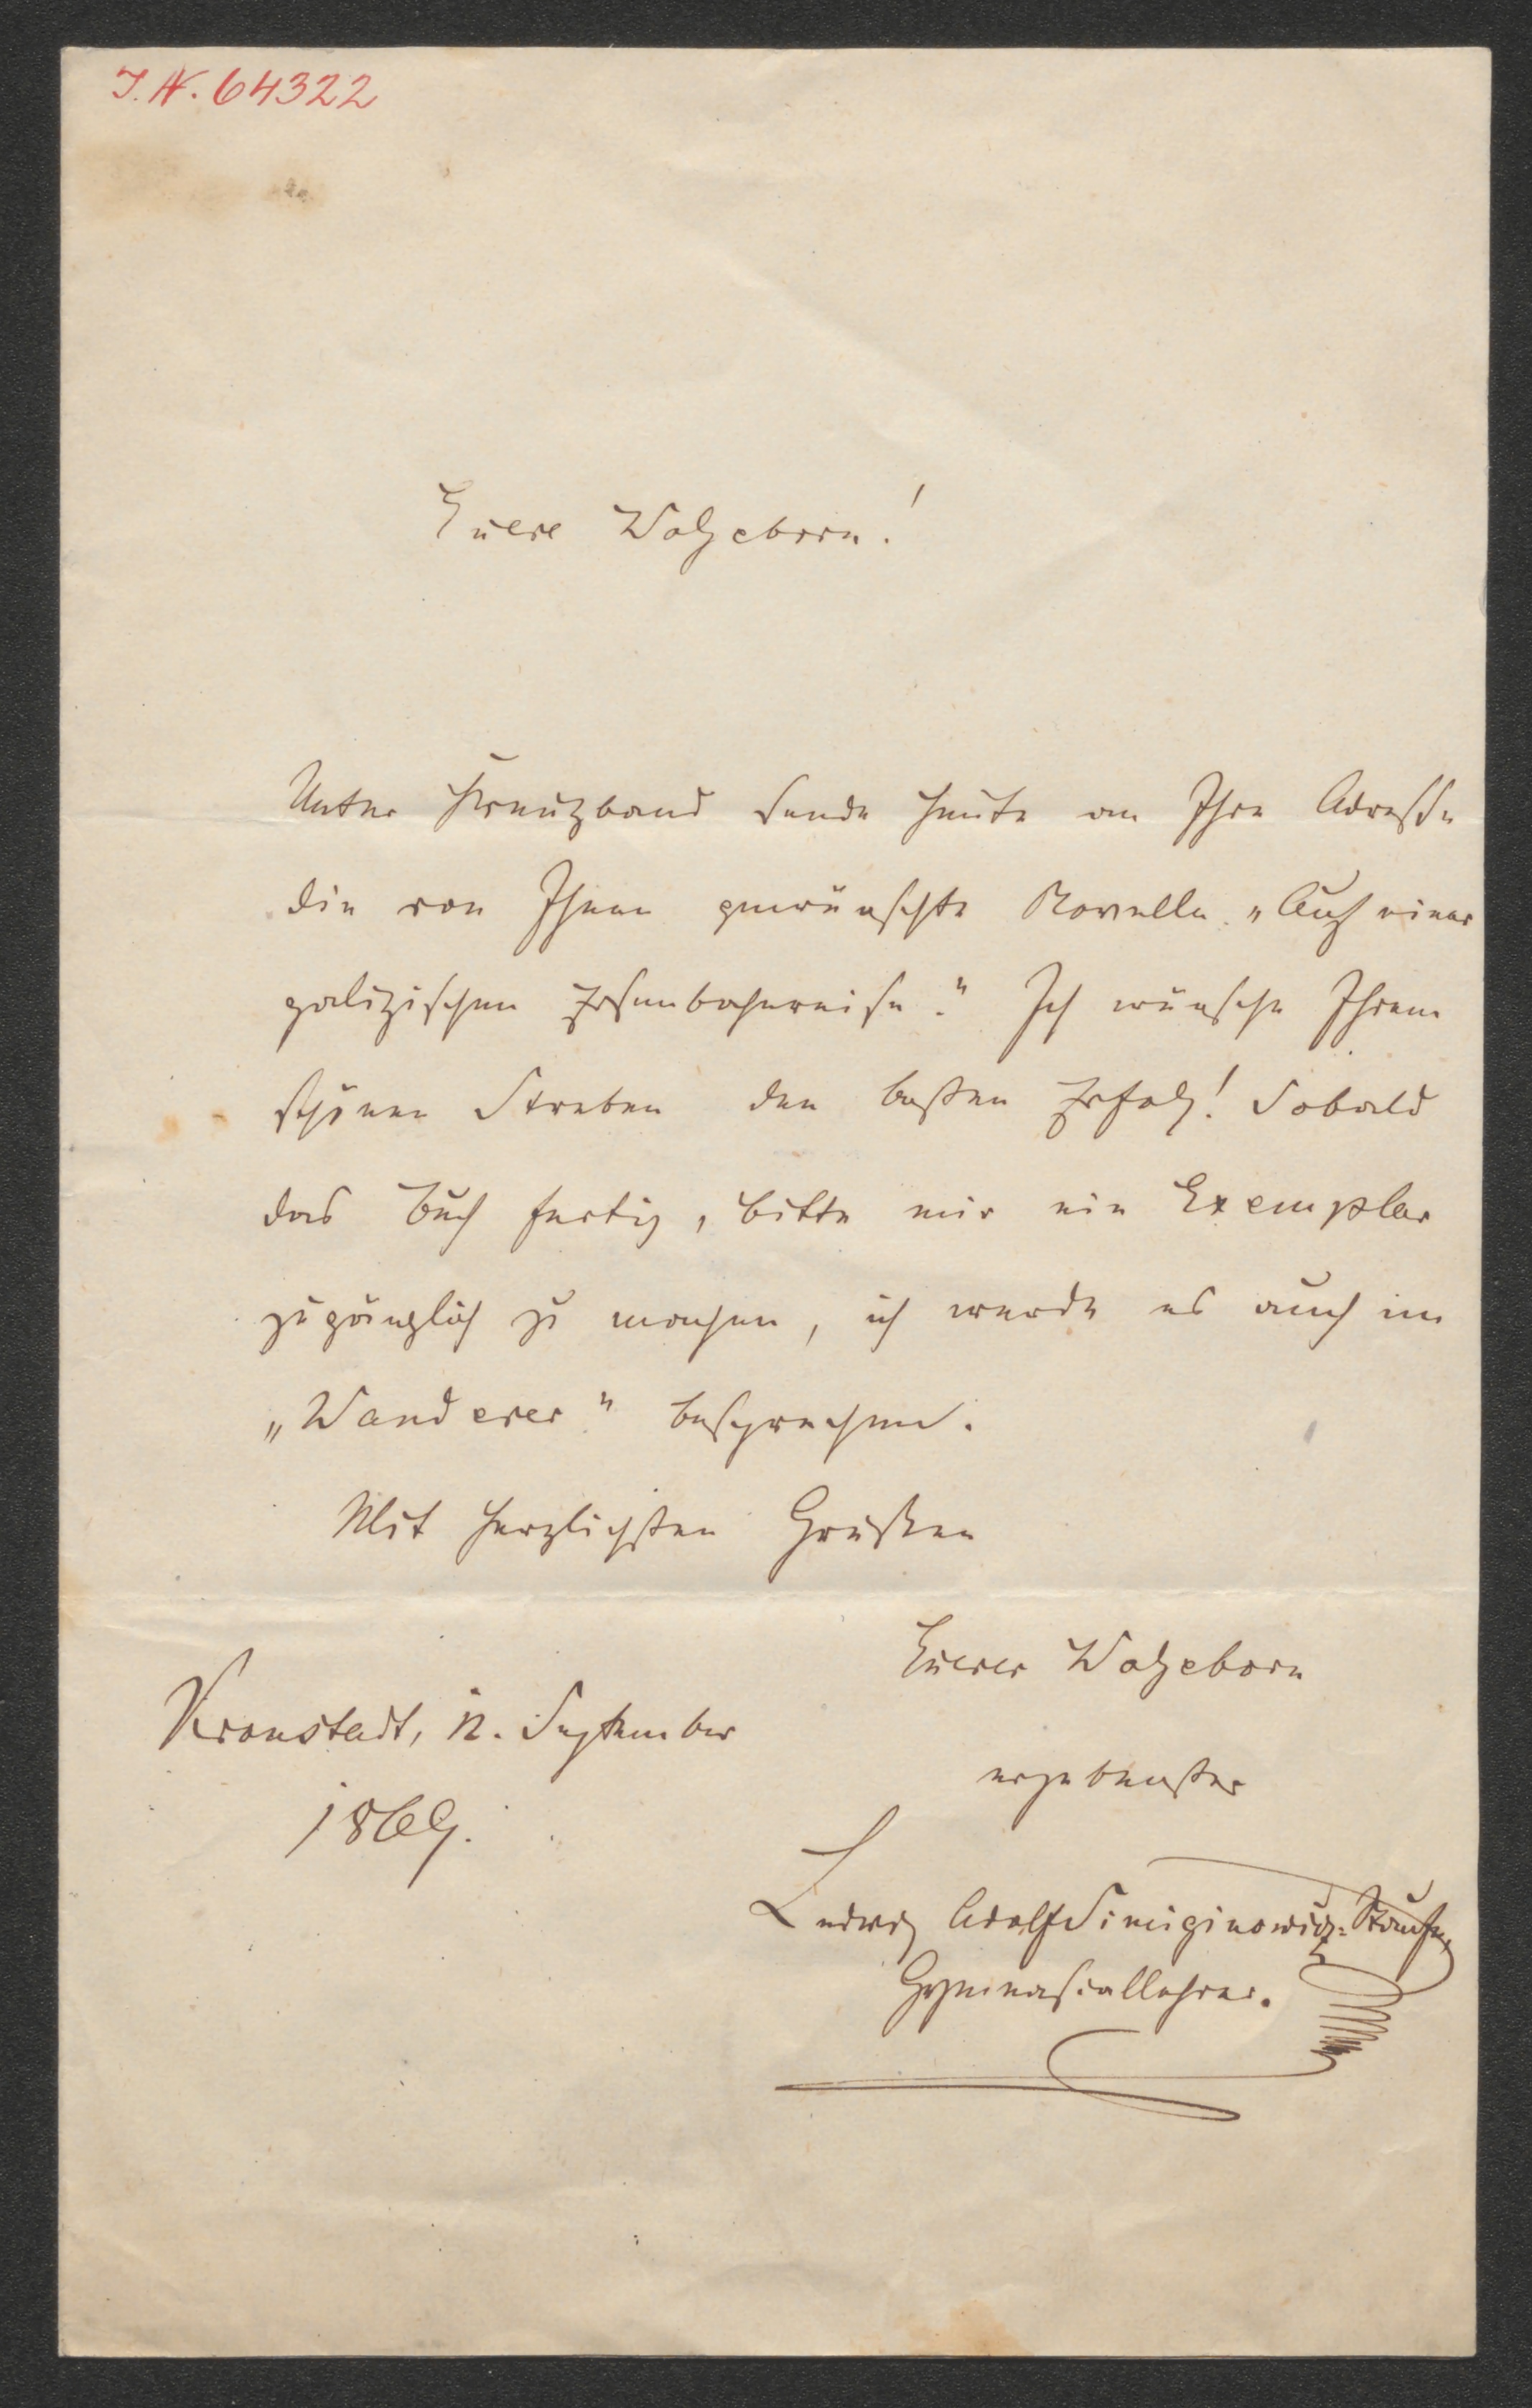 I. N. 64322
Euere Wolgeborn!
Unter Kreuzband sende heute an Ihre Adresse
die von Ihnen gewünschte Novelle „Auf einer
galizischen Eisenbahnreise." Ich wünsche Ihrem
schönen Streben den besten Erfolg! Sobald
das Buch fertig, bitte mir ein Exemplar
zugänglich zu machen, ich werde es auch im
„Wanderer" besprechen.
Mit herzlichsten Grüßen
Euerer Wolgeborn
Kronstadt, 12. September
ergebenster
1869.
Ludwig Adolf Simiginowicz-Staufe,
Gymnasiallehrer.